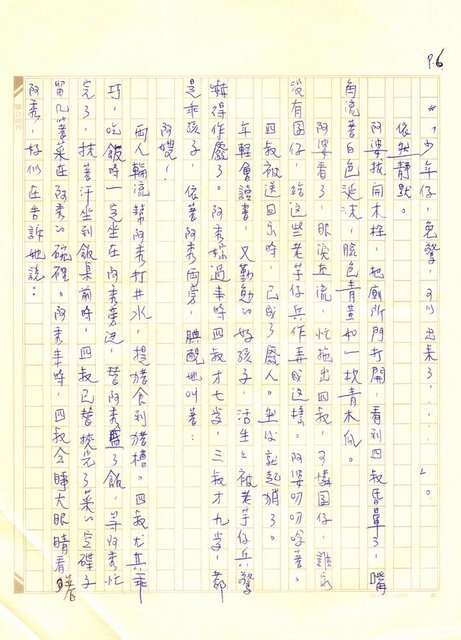 P.6
「少年仔，免驚，可以出来了……」。
依然静默。
阿婆拔開木栓，把廁所門打開，看到四叔昏暈了，嘴
角流著白色涎沫，臉色青黃如一枚青木瓜。
阿婆看了，眼淚直流，忙拖出四叔，可憐囝仔，誰家
沒有囝仔，給這些老芋仔兵作弄成這樣。阿婆叨叨唸著。
四叔被送回家時，已成了廢人。坐沒就起猾了。
年輕會讀書，又勤勉的好孩子，活生生被老芋仔兵驚
嚇得作廢了。阿秀嫁過来時四叔才七岁，三叔才九岁，都
是乖孩子，依著阿秀两旁，腼腆地叫著：
阿嫂！
两人輪流幫阿秀打井水，提豬食到豬槽。四叔尤其乖
巧，吃飯時一定坐在阿秀旁边，替阿秀盛了飯，等阿秀忙
完了，抹著汗坐到飯桌前時，四叔已替挾光了菜的空碟子
留几箸菜在阿秀的碗裡。阿秀走時，四叔会睜大眼睛看著
阿秀，好似在告訴她說：